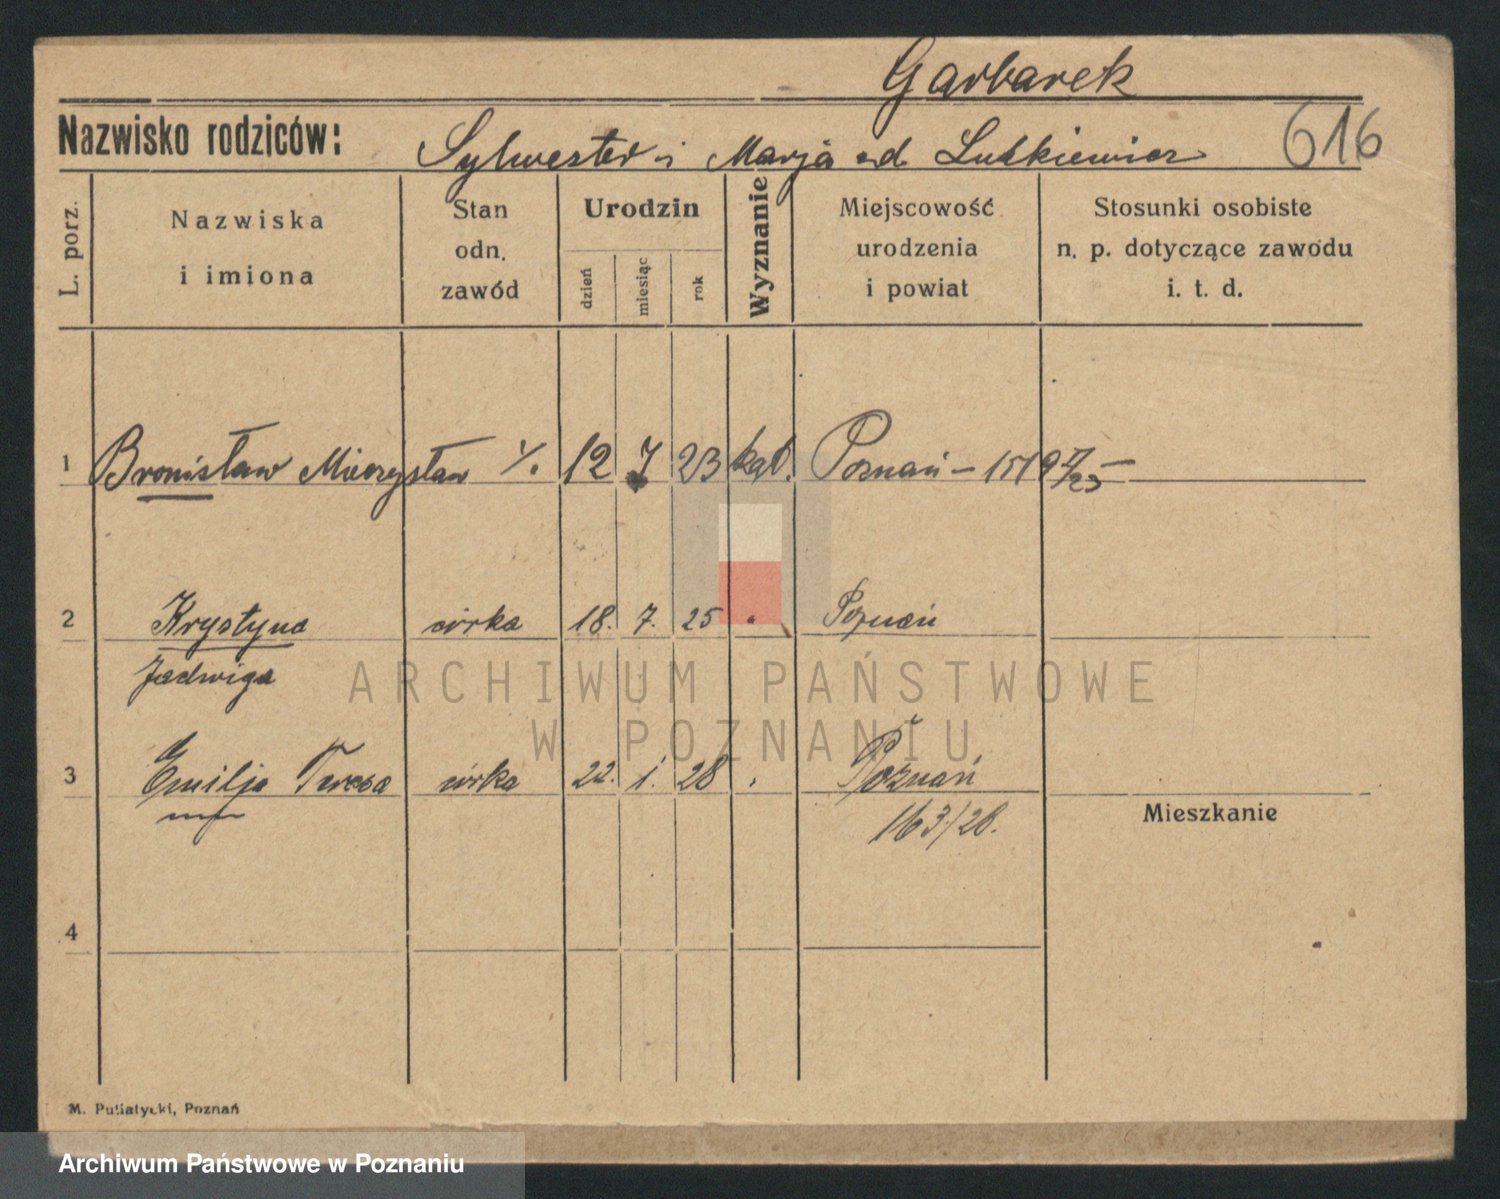 Garbarek
Nazwisko rodziców: Sylwester i Marja od Lutkiewicz 616
L. porz.
Nazwiska i imiona
Stan odn. zawód
Urodzin
dzień miesiąc rok
Wyznanie
Miejscowość urodzenia i powiat
Stosunki osobiste n. p. dotyczące zawodu i. t. d.
1 Bronisław Mieczysław 12 7 23 kat. Poznań –
2 Krystyna córka 18. 7. 25 Poznań
Jadwiga
3 Emilja Teresa córka 22. 1. 28 Poznań
163/28.
Mieszkanie
4
M. Putiatycki, Poznań
ARCHIWUM PAŃSTWOWE
W POZNANIU
Archiwum Państwowe w Poznaniu